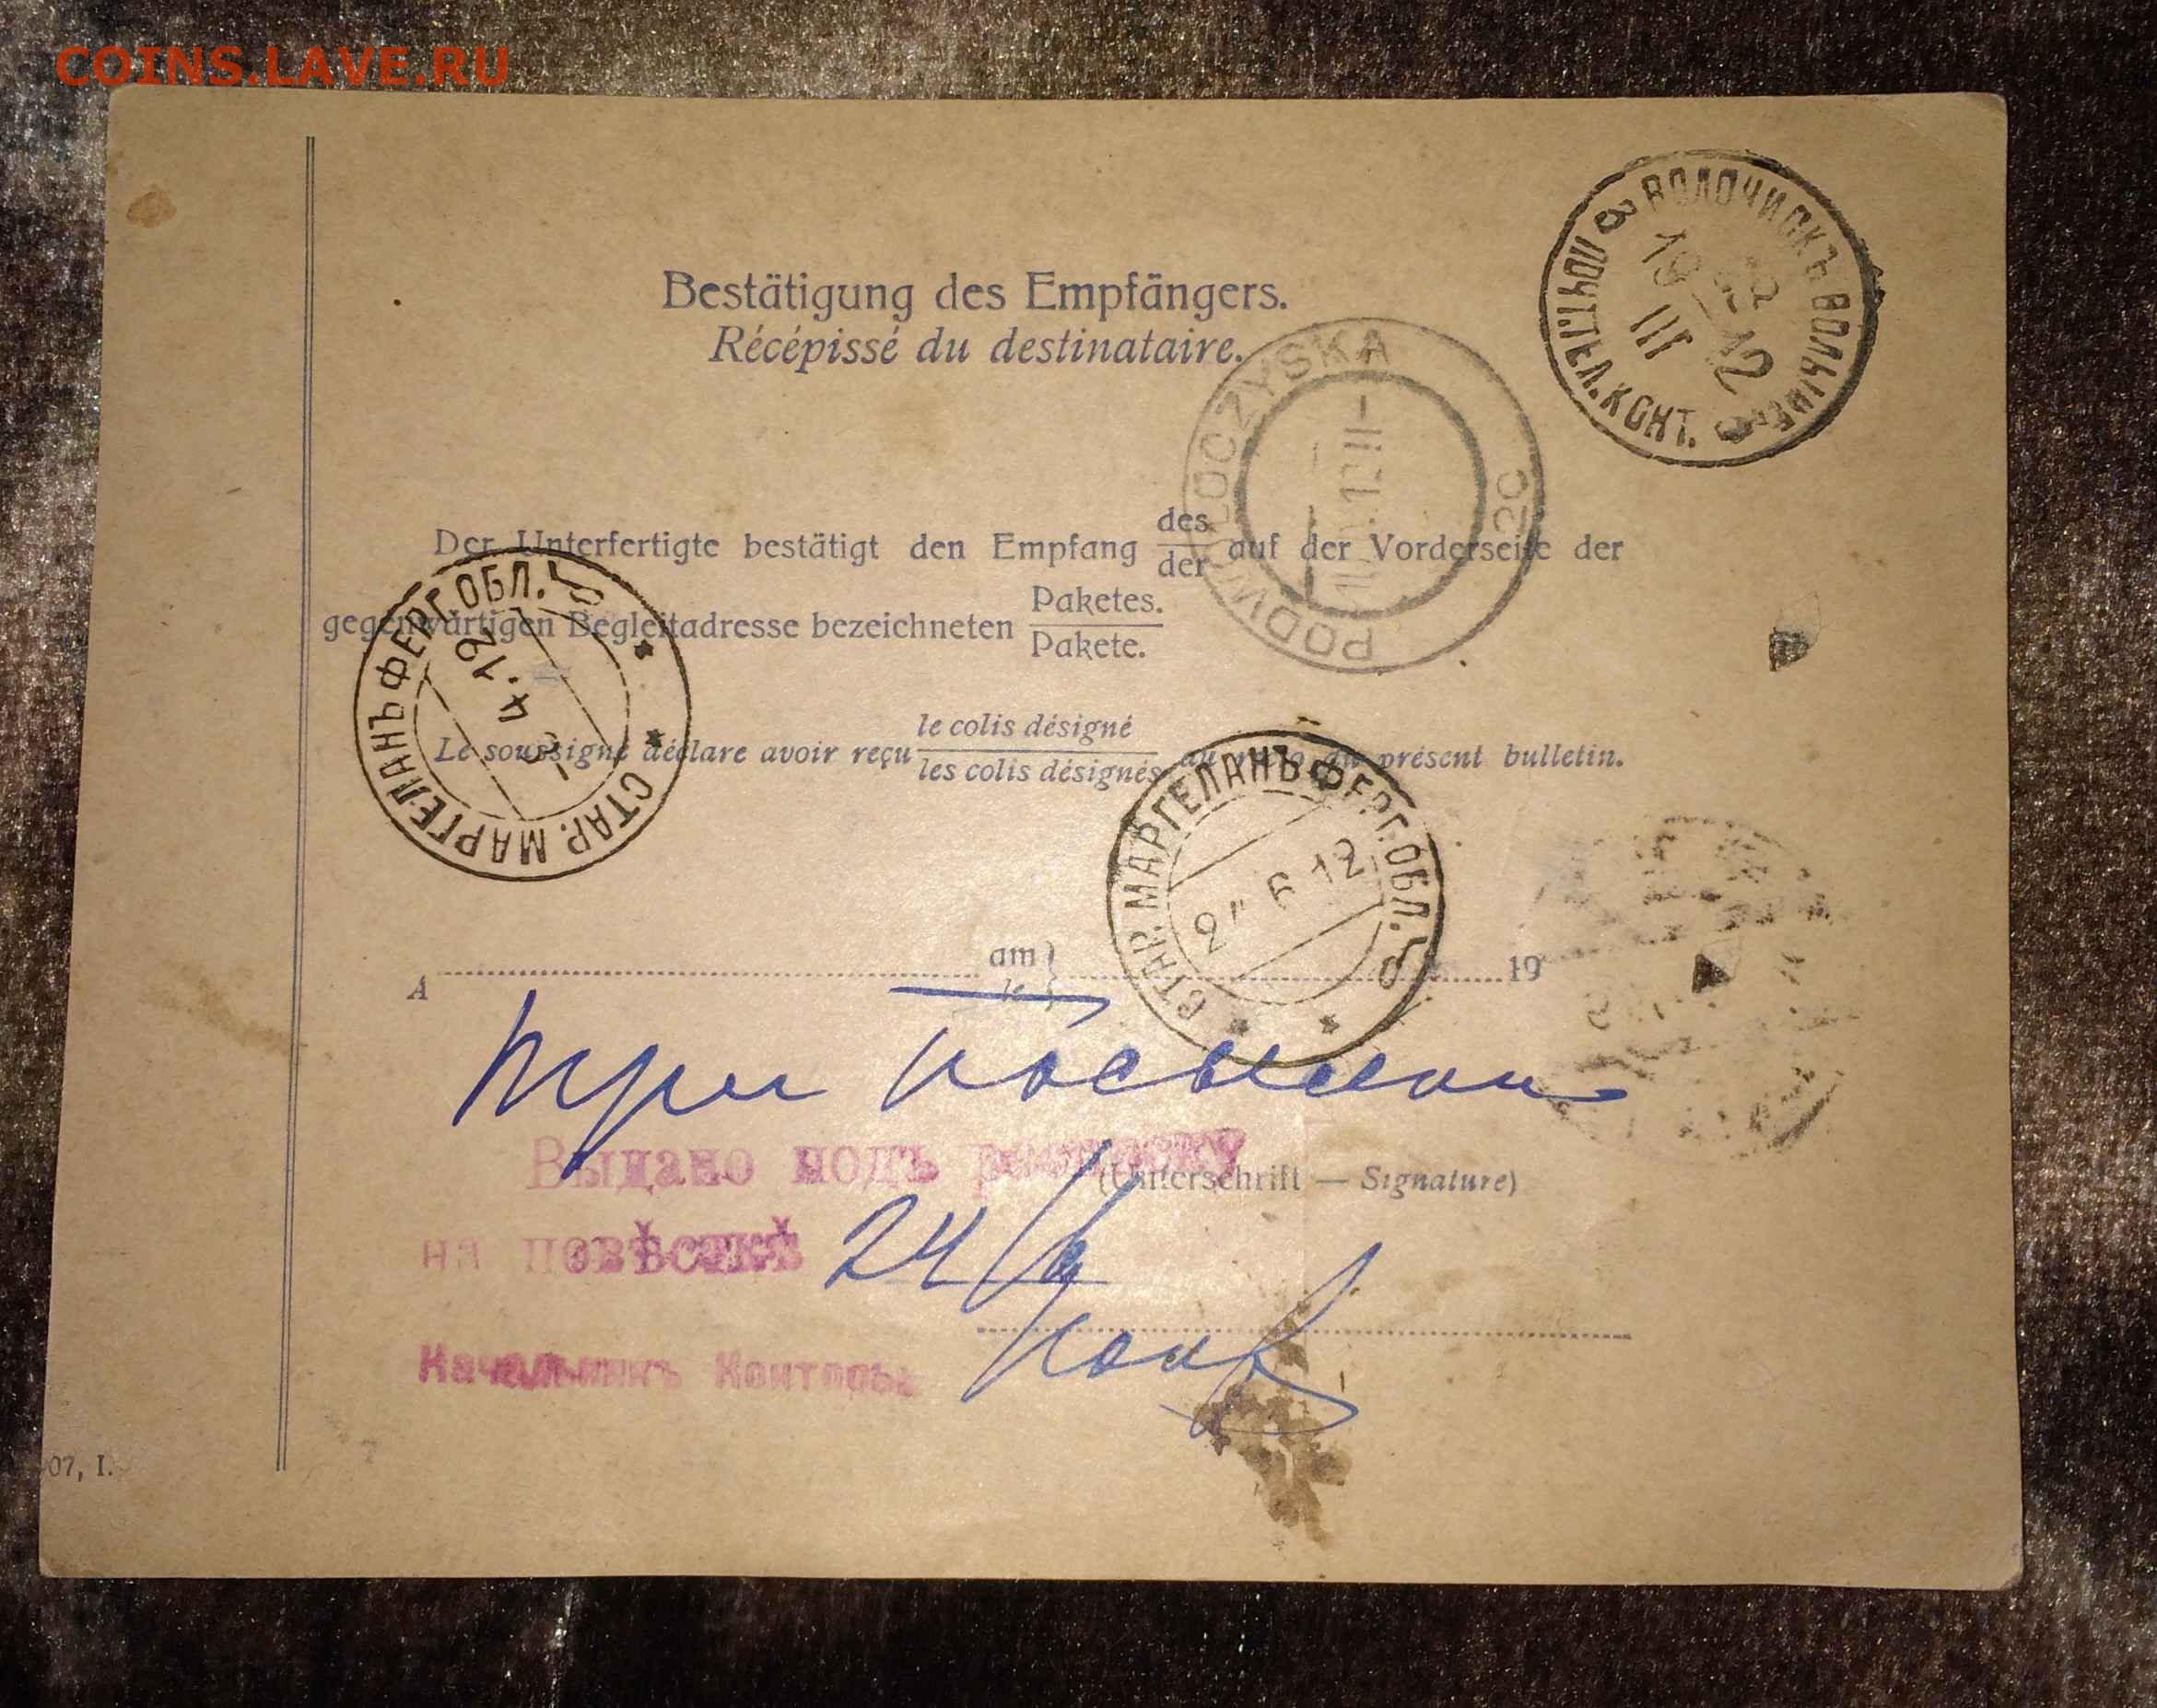 COINS.LAVE.RU
ВОЛОЧИСКЪ ВОЛЫН.
ПОЧТ.ТЕЛ.КОНТ.
19 12
III
12
Bestätigung des Empfängers.
Récépissé du destinataire.
PODWOŁOCZYSKA
2c
Der Unterfertigte bestätigt den Empfang des/der auf der Vorderseite der
gegenwärtigen Begleitadresse bezeichneten Paketes./Pakete.
СТАР. МАРГЕЛАНЪ ФЕРГ. ОБЛ.
4.12
Le soussigné déclare avoir reçu le colis désigné/les colis désignés au recto du présent bulletin.
СТАР. МАРГЕЛАНЪ ФЕРГ. ОБЛ.
6 12
A am/le 19
три посылки
Выдано подъ расписку
(Unterschrift — Signature)
на повѣсткѣ 24/6
Начальникъ Конторы
07, I.